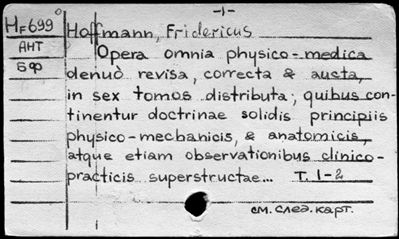 -1-
HF699° Hoffmann, Fridericus
АНТ
БФ
Opera omnia physico-medica
denuò revisa, correcta & aucta,
in sex tomos distributa, quibus con-
tinentur doctrinae solidis principiis
physico-mechanicis, & anatomicis,
atque etiam observationibus clinico-
practicis superstructae... T. 1-2
см. след. карт.